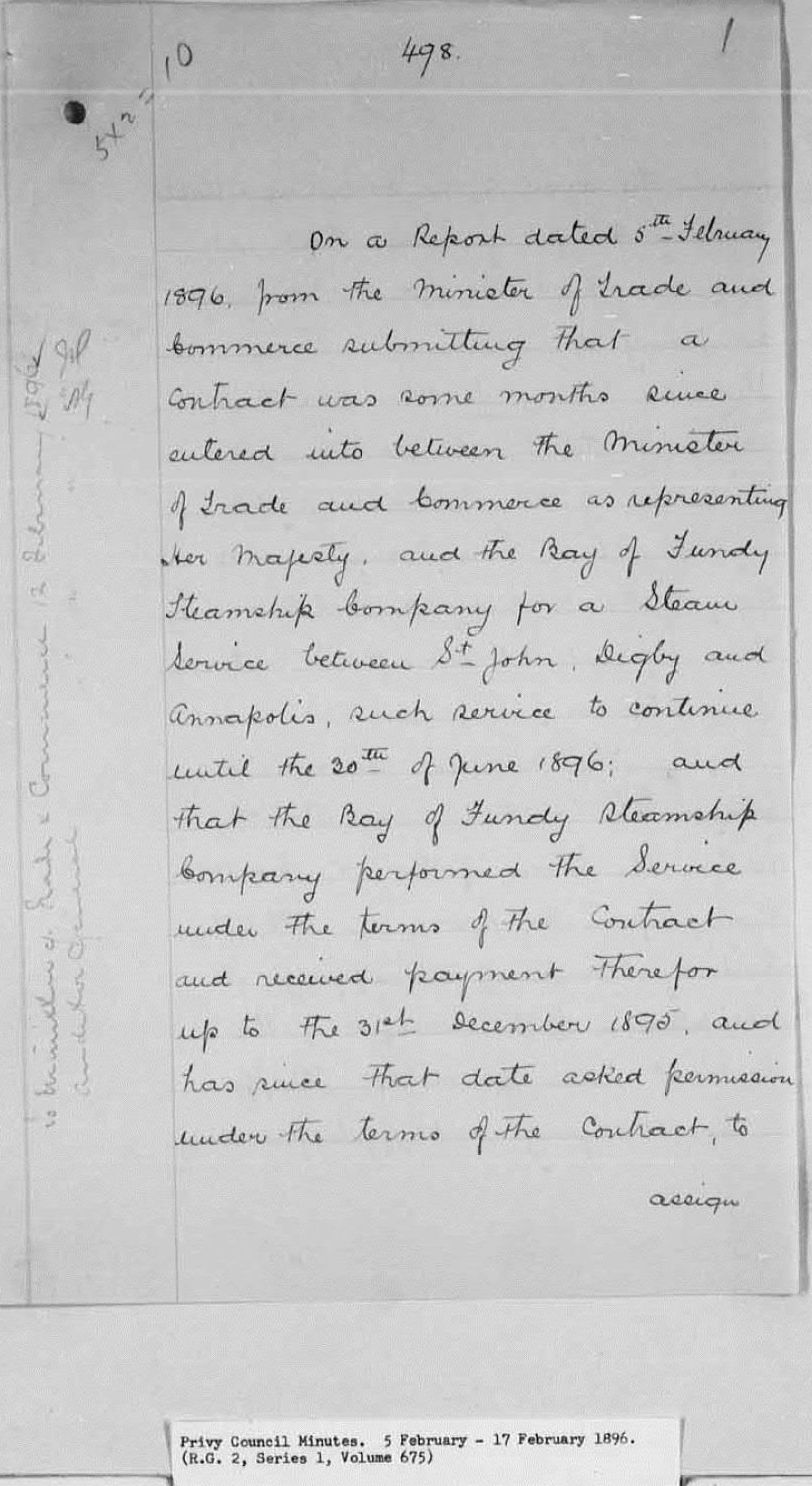 10 498. 1
5x2"
On a Report dated 5th February
1896, from the Minister of Trade and
Commerce submitting that a
Contract was some months since
entered into between the Minister
of Trade and Commerce as representing
Her Majesty, and the Bay of Fundy
Steamship Company for a Steam
Service between St John, Digby and
Annapolis, such service to continue
until the 30th of June 1896; and
that the Bay of Fundy Steamship
Company performed the Service
under the terms of the Contract
and received payment therefor
up to the 31st December 1895, and
has since that date asked permission
under the terms of the Contract, to
assign
to Minister of Trade & Commerce 12 February 1896
Auditor General " " "
Privy Council Minutes. 5 February - 17 February 1896.
(R.G. 2, Series 1, Volume 675)